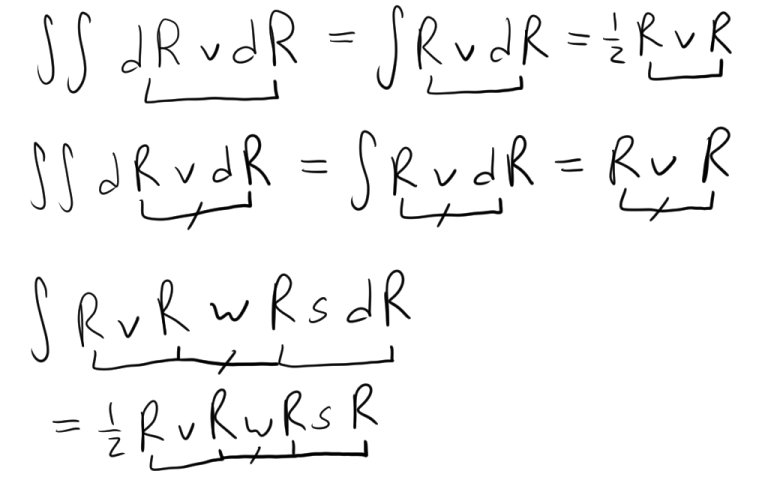 ∫∫ dR v dR = ∫ R v dR = ½ R v R
∫∫ dR v dR = ∫ R v dR = R v R
∫ R v R w R s dR
= ½ R v R w R s R